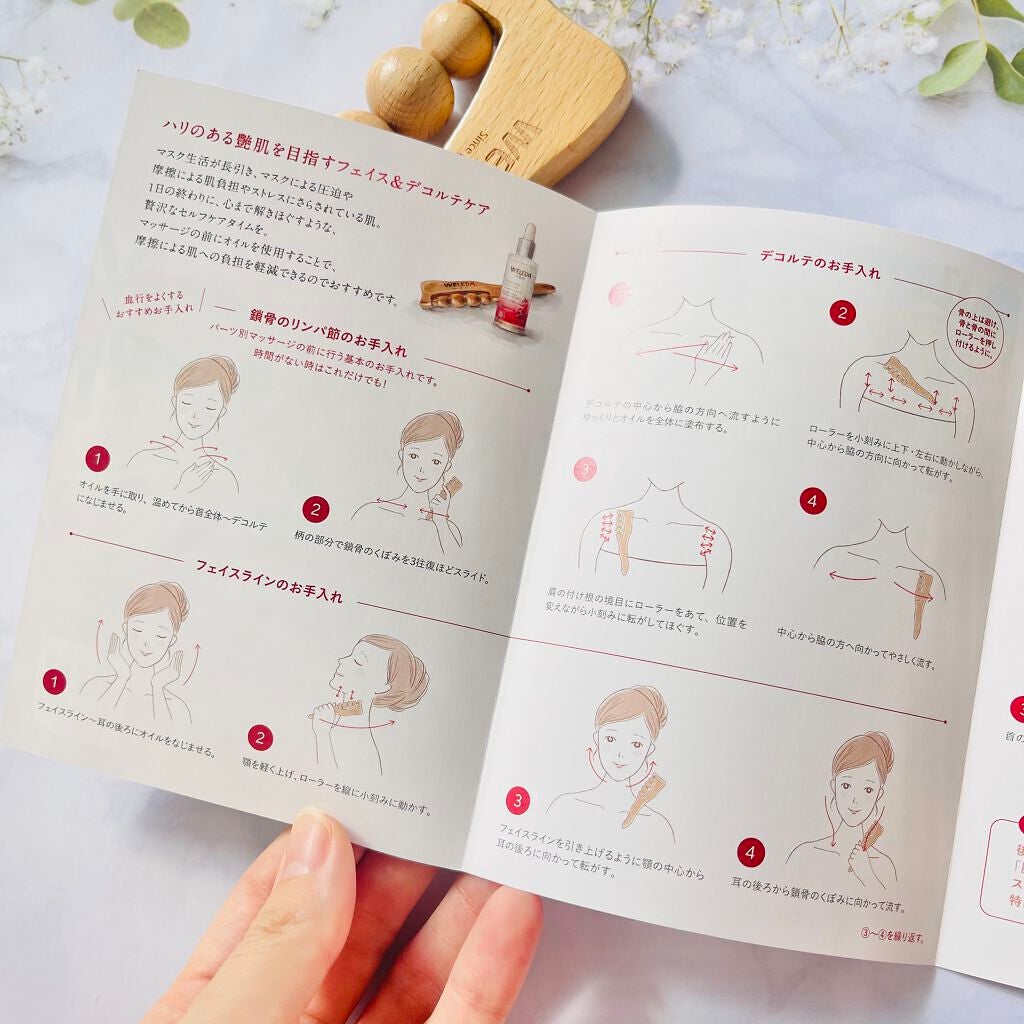 Since
ハリのある艶肌を目指すフェイス&デコルテケア
マスク生活が長引き、マスクによる圧迫や
摩擦による肌負担やストレスにさらされている肌。
1日の終わりに、心まで解きほぐすような、
贅沢なセルフケアタイムを。
マッサージの前にオイルを使用することで、
摩擦による肌への負担を軽減できるのでおすすめです。
WELEDA
WELEDA
血行をよくする
おすすめお手入れ
鎖骨のリンパ節のお手入れ
パーツ別マッサージの前に行う基本のお手入れです。
時間がない時はこれだけでも!
1
オイルを手に取り、温めてから首全体〜デコルテ
になじませる。
2
柄の部分で鎖骨のくぼみを3往復ほどスライド。
フェイスラインのお手入れ
1
フェイスライン〜耳の後ろにオイルをなじませる。
2
顎を軽く上げ、ローラーを縦に小刻みに動かす。
3
フェイスラインを引き上げるように顎の中心から
耳の後ろに向かって転がす。
4
耳の後ろから鎖骨のくぼみに向かって流す。
③〜④を繰り返す。
デコルテのお手入れ
デコルテの中心から脇の方向へ流すように
ゆっくりとオイルを全体に塗布する。
2
骨の上は避け、
骨と骨の間に
ローラーを押し
付けるように。
ローラーを小刻みに上下・左右に動かしながら、
中心から脇の方向に向かって転がす。
3
肩の付け根の境目にローラーをあて、位置を
変えながら小刻みに転がしてほぐす。
4
中心から脇の方へ向かってやさしく流す。
首の